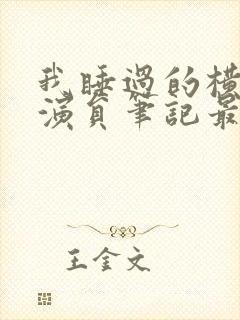 我睡過的橫
演員筆記最
王金文